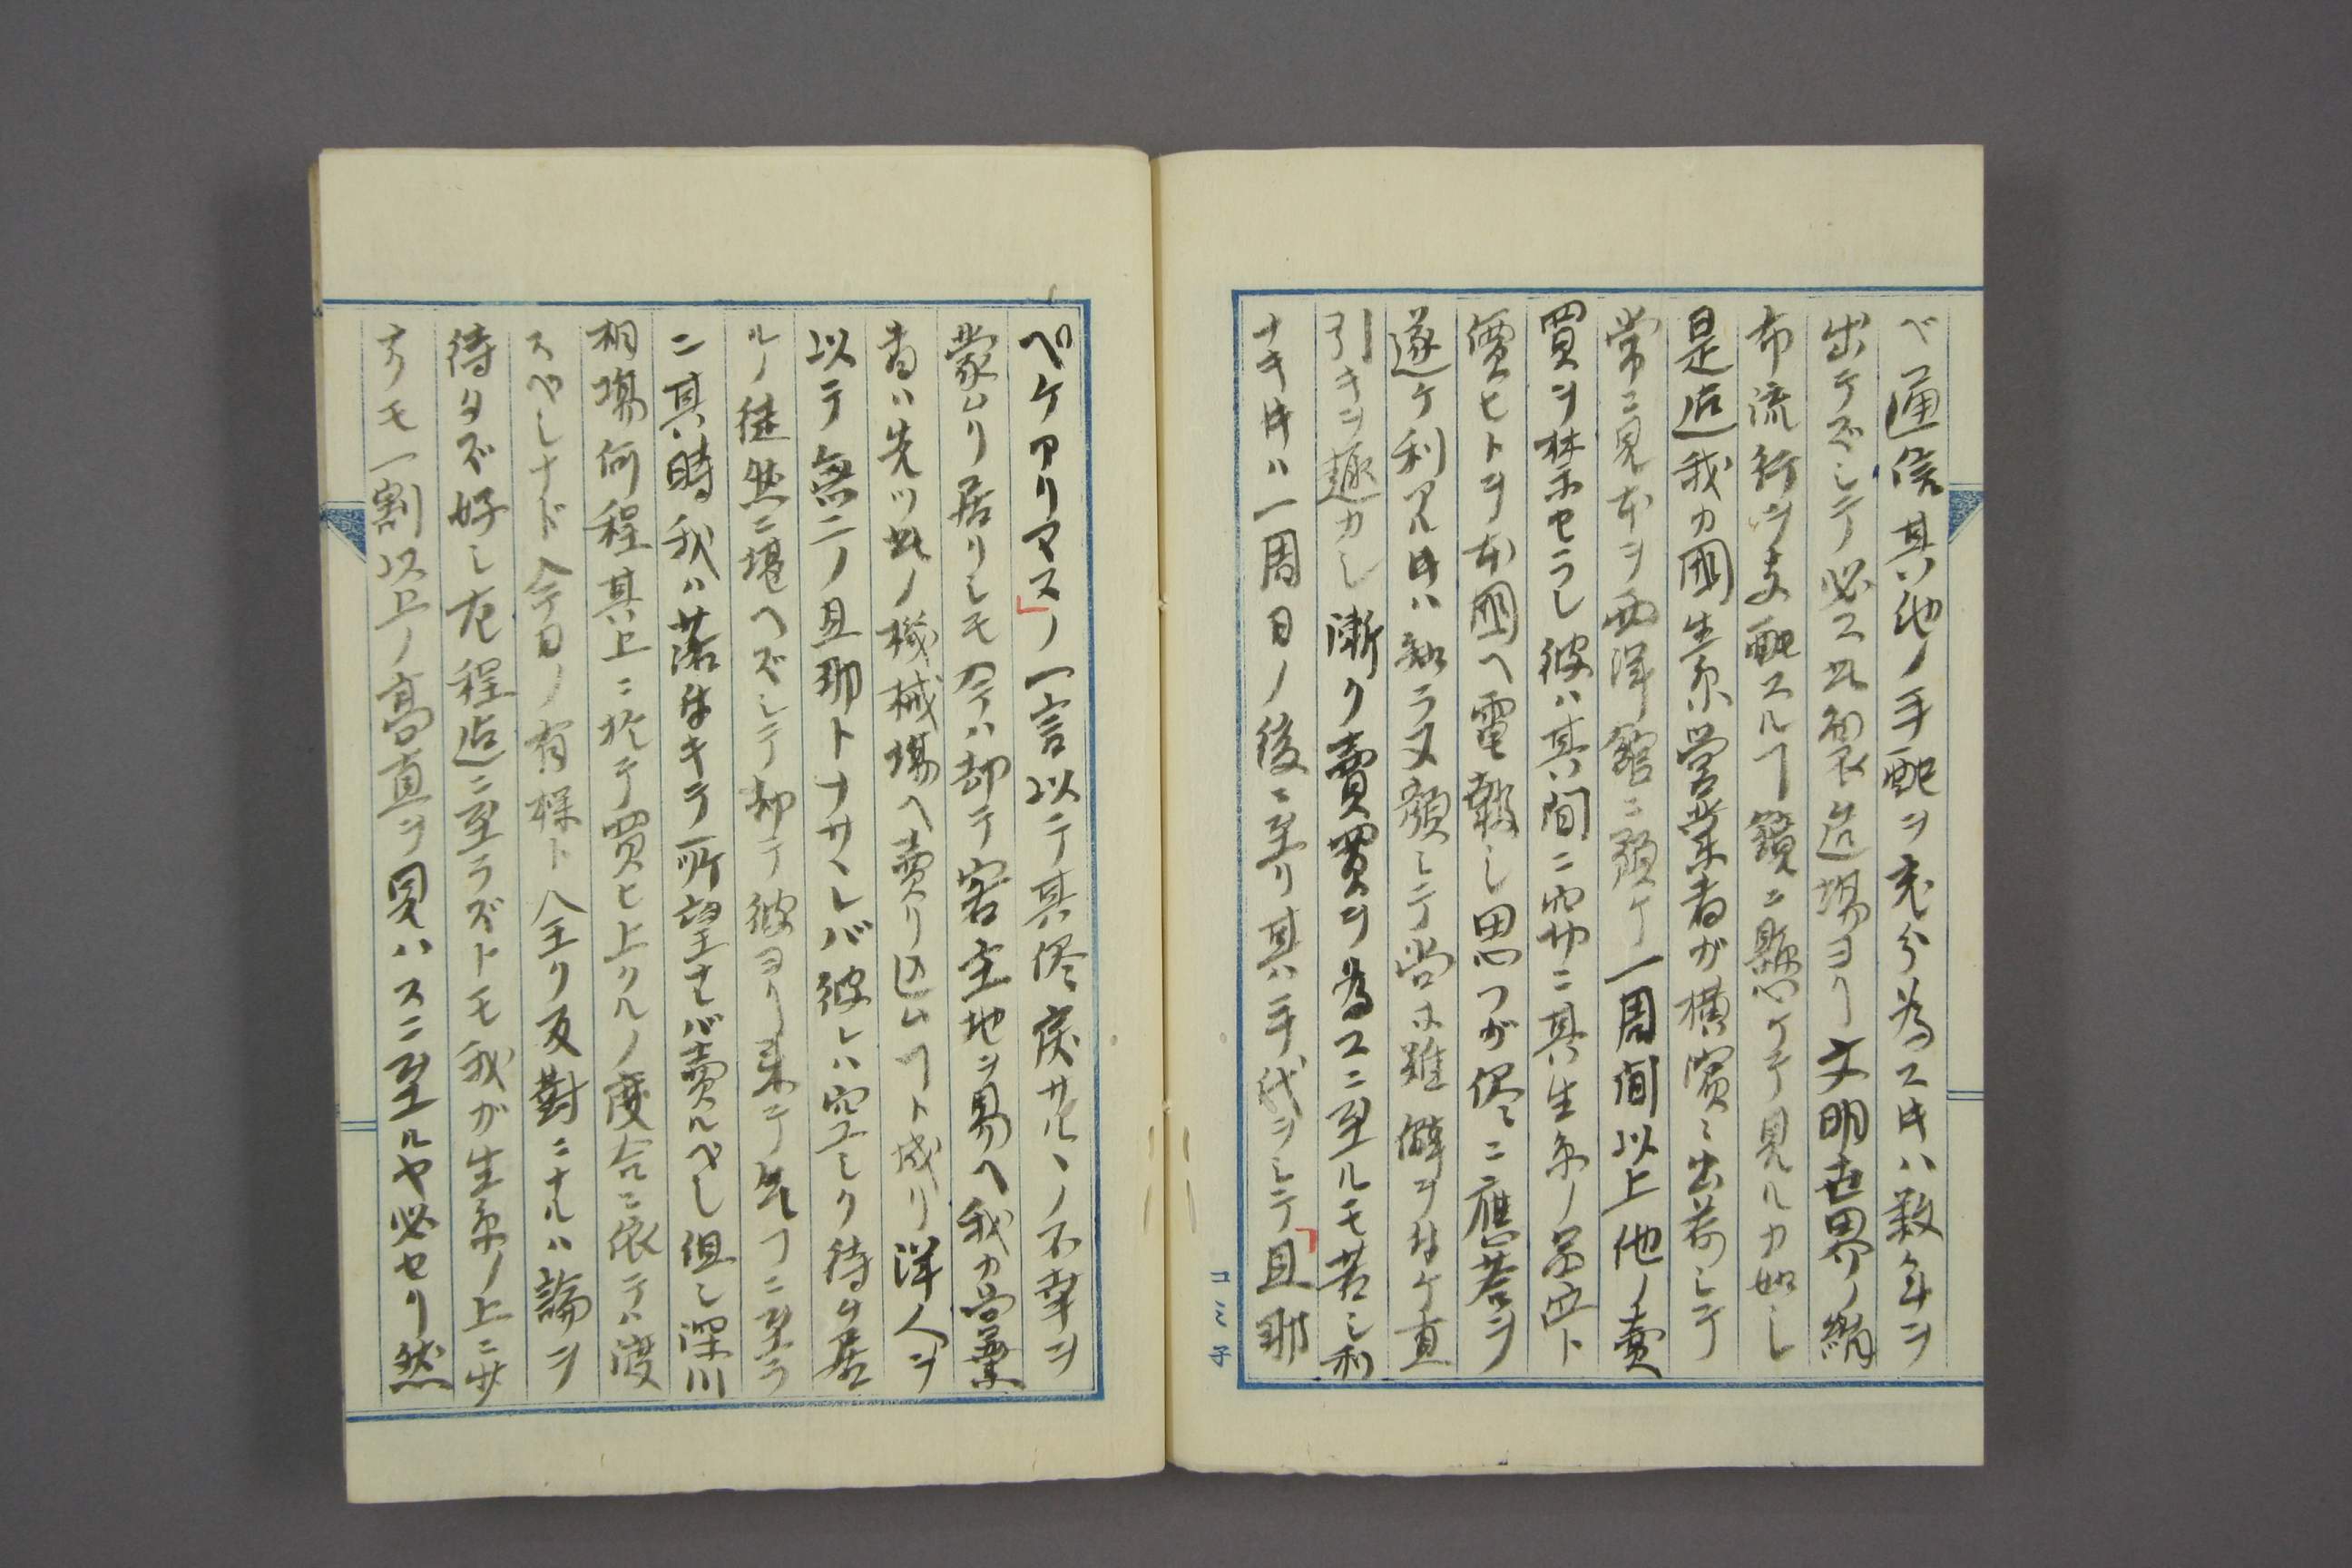 ベ通信其他ノ手配ヲ充分為スキハ数年ヲ
出テズシテ必ス此製造場ヨリ文明世界ノ絹
布流行ヲ支配スルヿ鏡ニ懸ケテ見ルカ如シ
是迄我カ国生糸営業者が横濱ヘ出荷シテ
常ニ見本ヲ西洋館ニ預ケ一周間以上他ノ賣
買ヲ禁セラレ彼ハ其間ニ窃ニ其生糸ノ品位ト
價ヒトヲ本國ヘ電報シ思フが侭ニ應答ヲ
遂ケ利アルキハ知ラヌ顔シテ尚ホ難癖ヲ付ケ直
引キヲ趣カシ漸ク賣買ヲ為スニ至ルモ若シ利
ナキキハ一周日ノ後ニ至リ其ハ手代ヲシテ「旦那
コミ子
ペケアリマス」ノ一言以テ其侭戻サルヽノ不幸ヲ
蒙ムリ居リシモ今ハ却テ客主地ヲ易ヘ我カ営業
者ハ先ツ此ノ機械場ヘ賣リ込ムヿト成リ洋人ヲ
以テ無二ノ旦那トナサヽレバ彼レハ空シク待チ居
ルノ徒然ニ堪ヘズシテ却テ彼ヨリ来テ乞フニ至ラ
ン其時我ハ落付キテ所望ナレバ賣ルベシ但シ深川
相場何程其上ニ於テ買ヒ上クルノ度合ニ依テハ渡
スベシナド今日ノ有様ト全ク反對ニナルハ論ヲ
待タズ好シ左程迄ニ至ラズトモ我が生糸ノ上ニ少
ナクモ一割以上ノ高直ヲ見ハスニ至ルヤ必セリ然